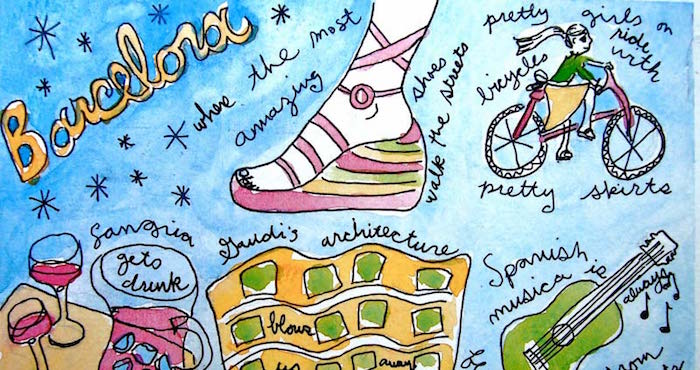 Barcelona
where the most
amazing
shoes
walk the streets
pretty girls on
bicycles ride with
pretty skirts
Sangria
gets
drunk
Gaudi's architecture
blows
us away
Spanish
musica is
always
from